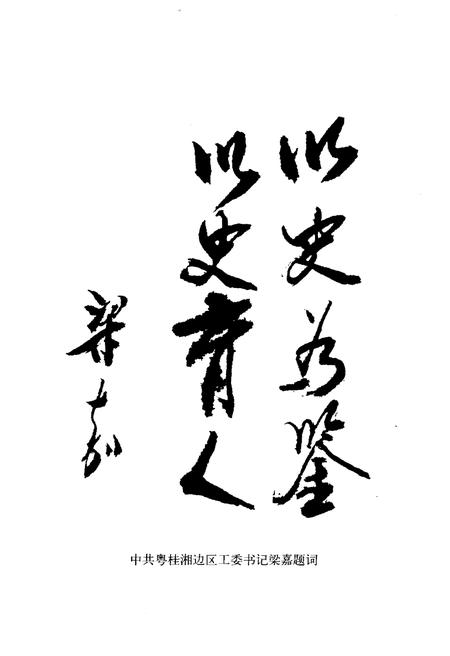 以史为鉴
以史育人
梁嘉
中共粤桂湘边区工委书记梁嘉题词